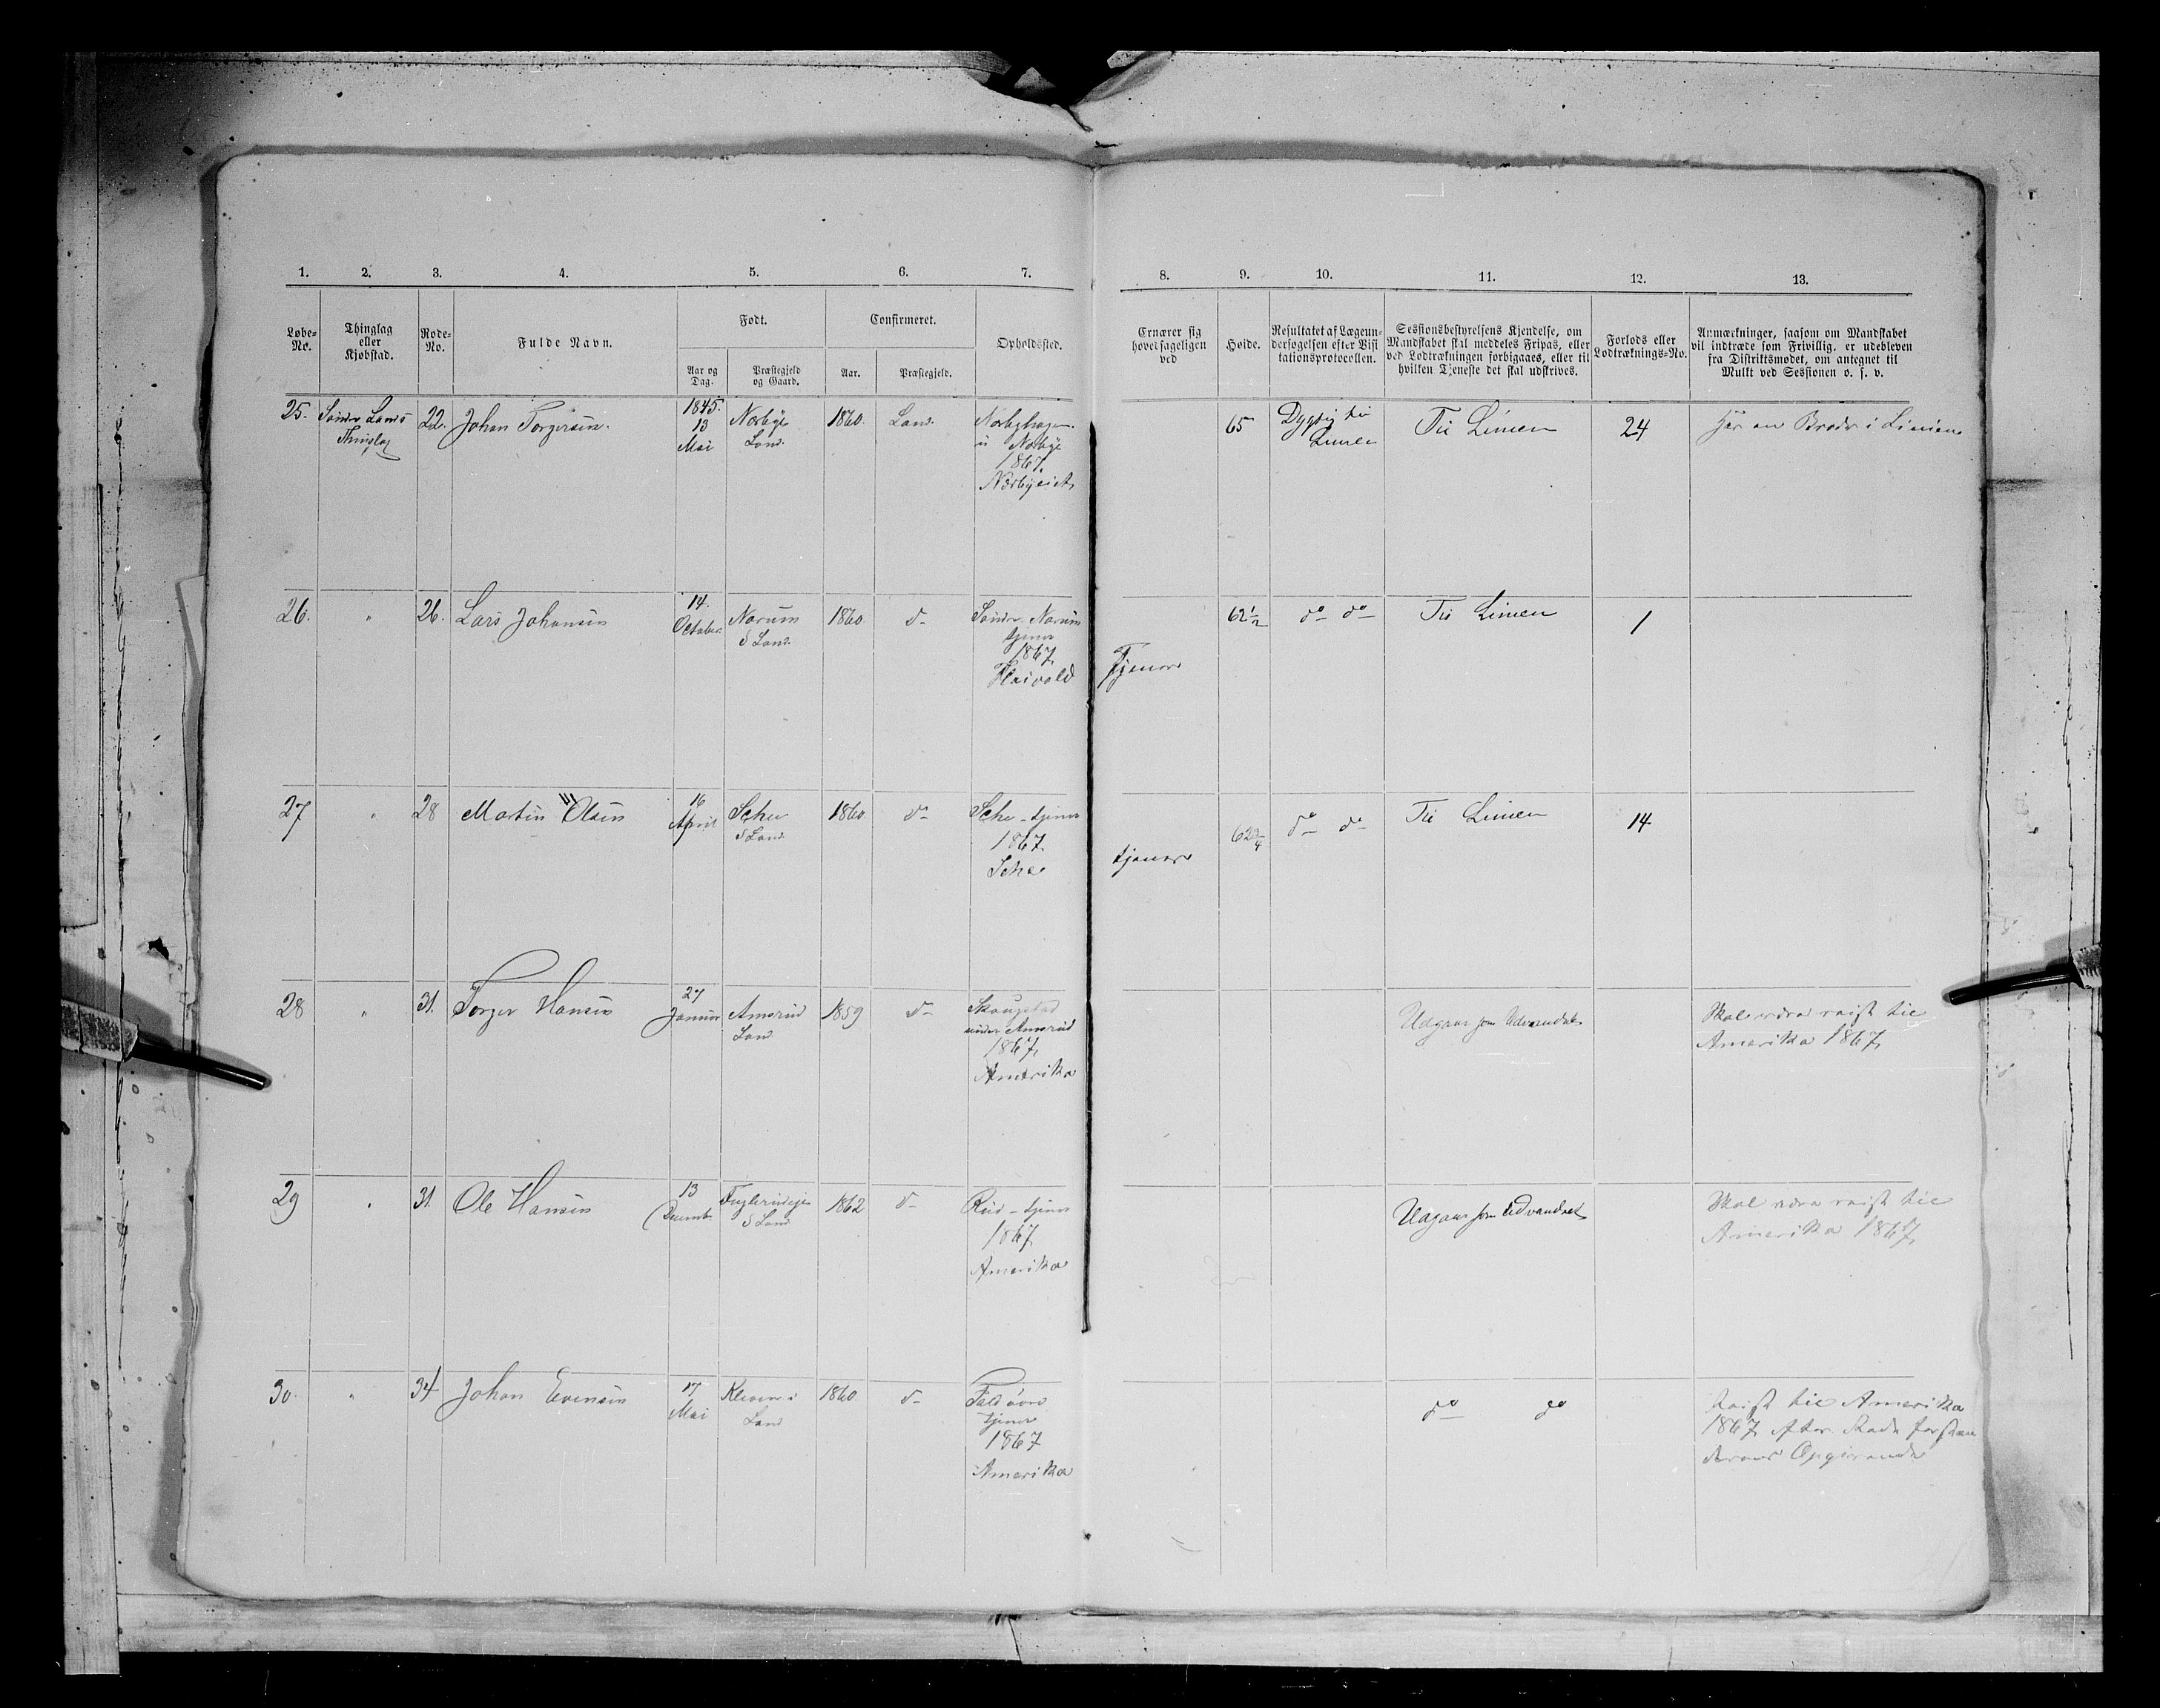 1. 2. 3. 4. 5. 6. 7. 8. 9. 10. 11. 12. 13.
Løbe-
No.
Thinglag
eller
Kjøbstad.
Rode-
No.
Fulde Navn.
Født.
Aar og
Dag.
Præstegjeld
og Gaard.
Confirmeret.
Aar.
Præstegjeld.
Opholdssted.
Ernærer sig
hovedsageligen
ved
Høide.
Resultatet af Lægeun-
dersøgelsen efter Visi
tationsprotocollen.
Sessionsbestyrelsens Kjendelse, om
Mandskabet skal meddeles Fripas, eller
ved Lodtrækningen forbigaaes, eller til
hvilken Tjeneste det skal udskrives.
Forlods eller
Lodtræknings-No.
Anmærkninger, saasom om Mandskabet
vil indtræde som Frivillig, er udebleven
fra Distriktsmødet, om antegnet til
Mulkt ved Sessionen o. s. v.
25. Søndre Lands
Thinglag
22. Johan Torgersen.
1845.
13
Mai
Nørbye
Land.
1860. Land.
i Nørbye
1867
Nørbyeiet
65 Dygtig til
Linien
Til Linien 24 Har en Broder i Linien
26. " 26. Lars Johansen
14.
October.
Narum
S Land.
1860 do
Søndre Narum
tjener
1867
Tjener
62½ do do Til Linien 1
27 " 28 Martin Olsen
16
April
S Land
1860 do
tjener
1867
tjener
62¾ do do Til Linien 14
28 " 31. Torger Hansen
27
Januar
Amsrud
Land
1859 do
Skougstad
under Amsrud
1867
Amerika
Udgaar som Udvandret
Skal være reist til
Amerika 1867
29 " 31. Ole Hansen
13
Decemb.
S Land
1862 do
Rud - tjener
1867
Amerika
Udgaar som Udvandret
Skal være reist til
Amerika 1867
30. " 34 Johan Evensen
17
Mai
Land
1860 do
tjener
1867
Amerika
do do
Reist til Amerika
1867 efter Rodeforstan
derens Opgivende